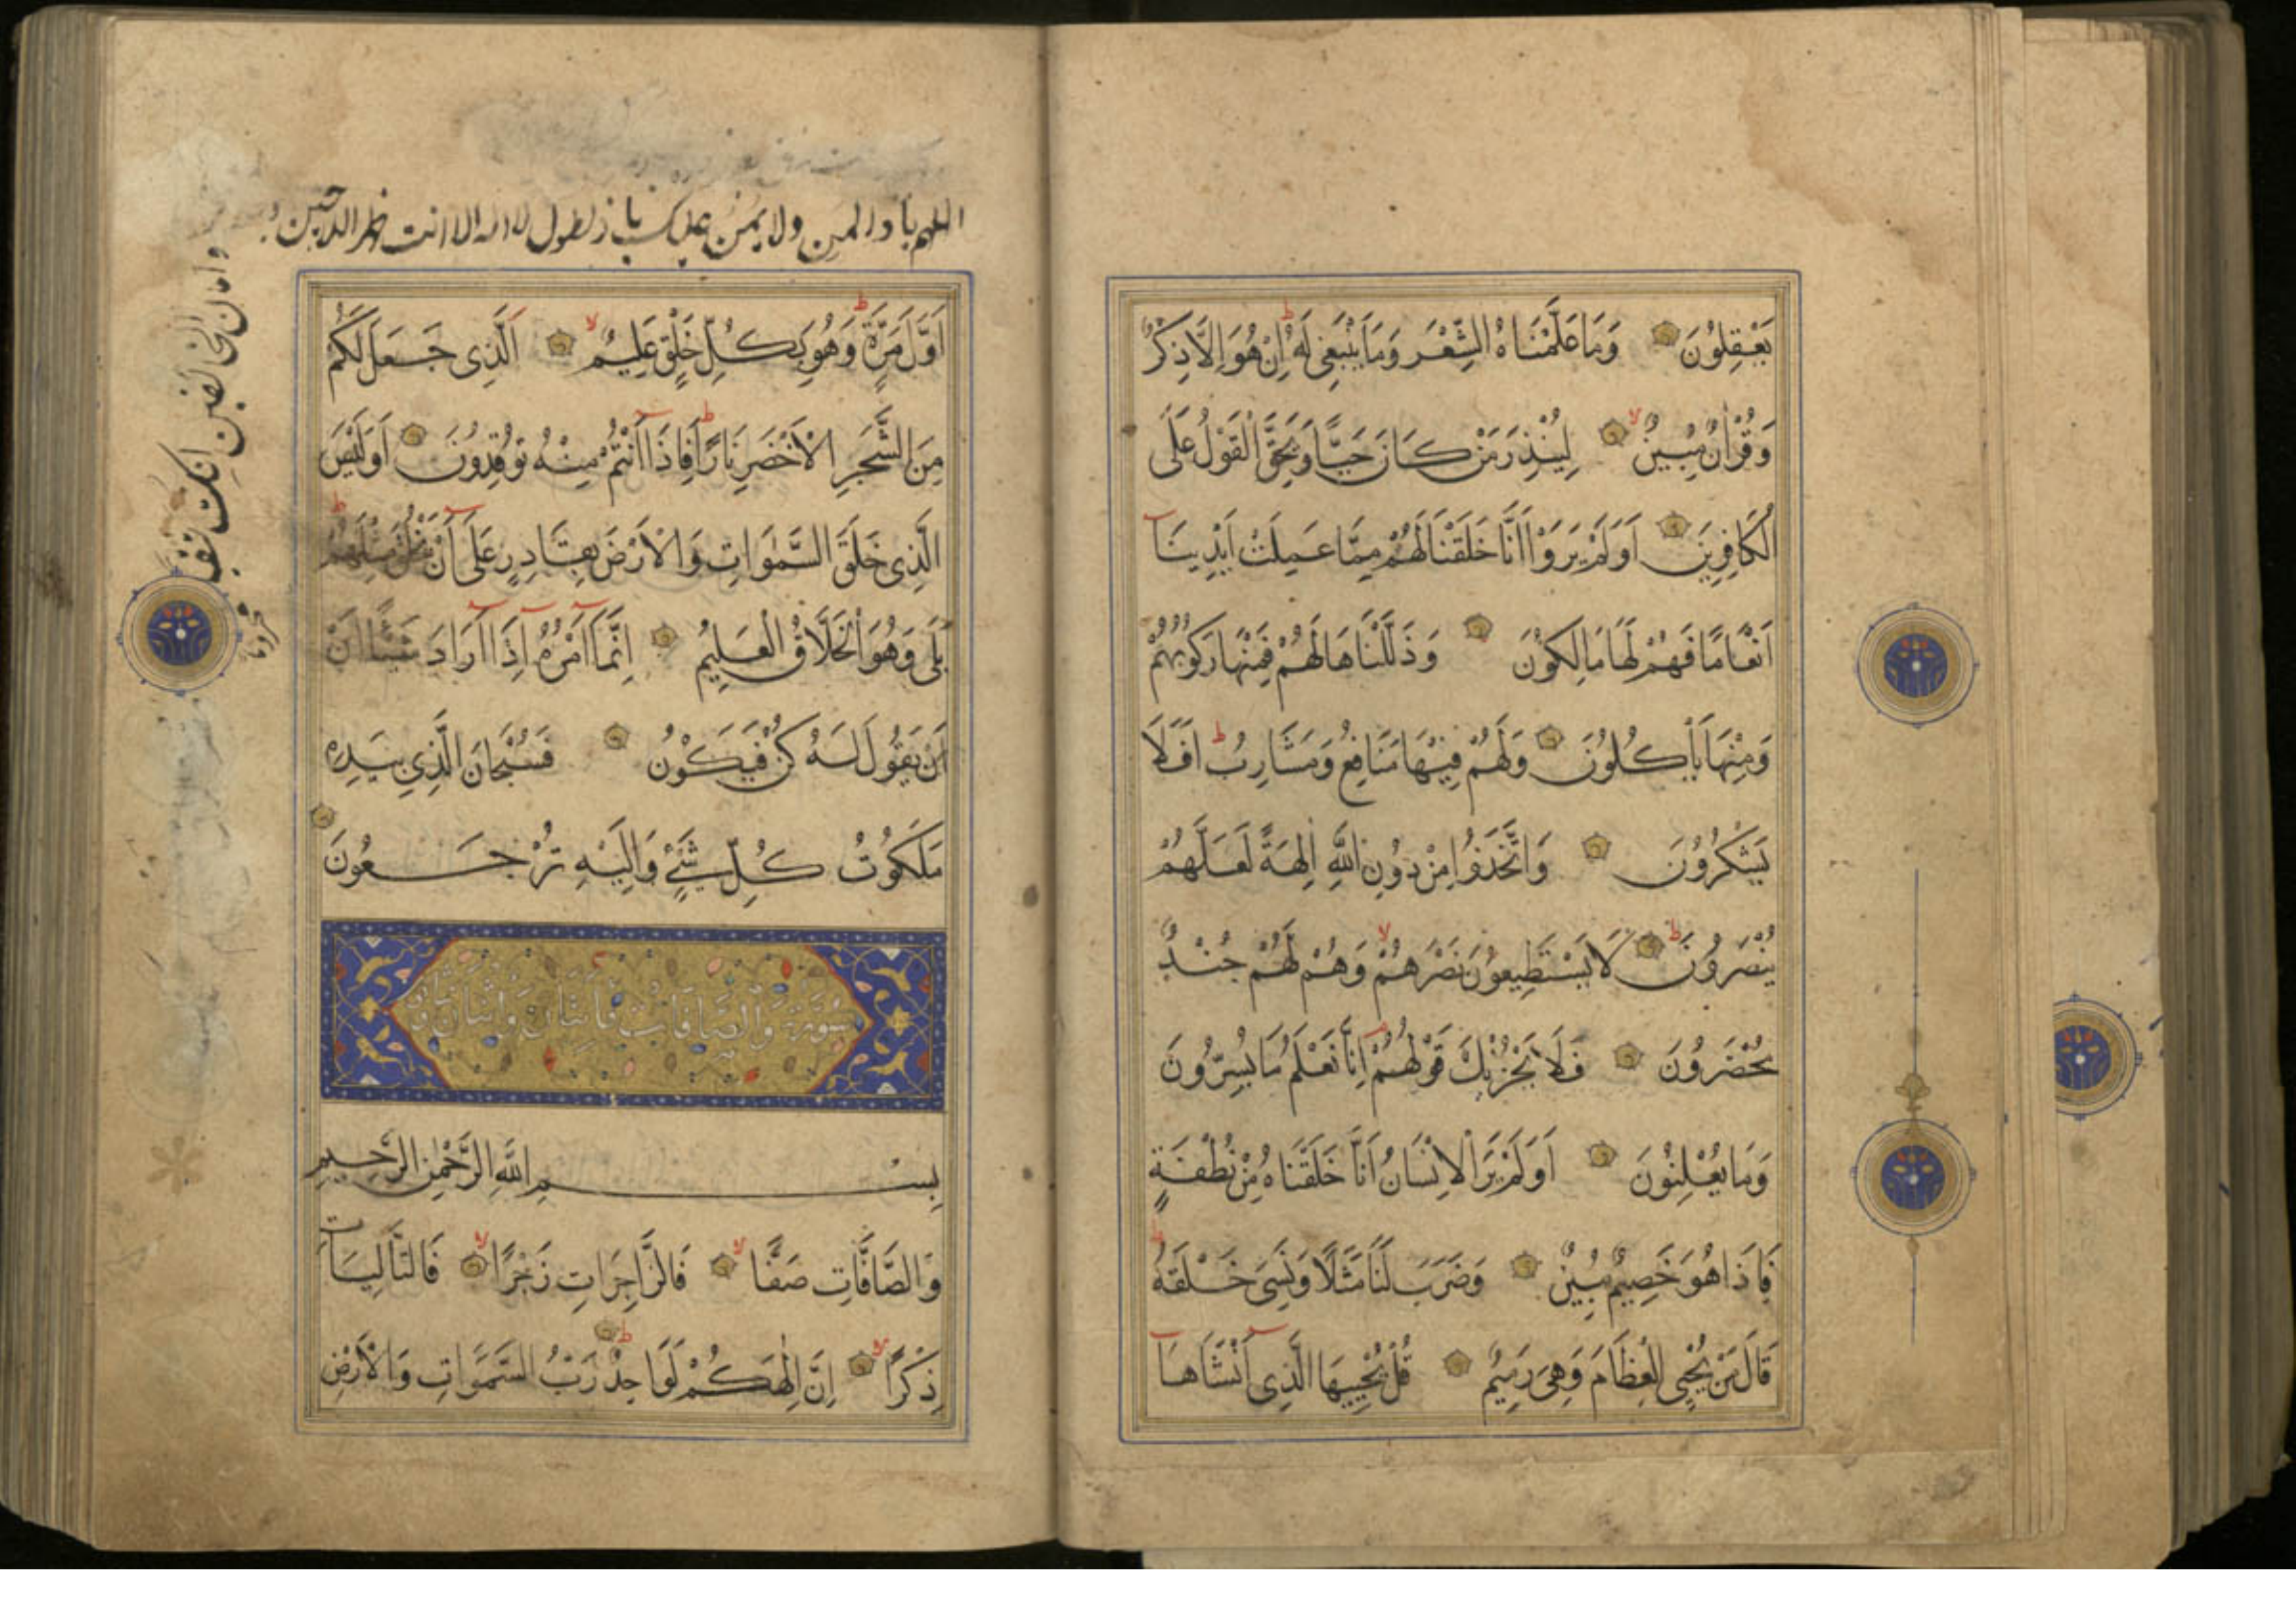 يَعْقِلُونَ وَمَا عَلَّمْنَاهُ الشِّعْرَ وَمَا يَنْبَغِي لَهُ اِنْ هُوَ اِلَّا ذِكْرٌ
وَقُرْاٰنٌ مُبِينٌ لِيُنْذِرَ مَنْ كَانَ حَيًّا وَيَحِقَّ الْقَوْلُ عَلَى
الْكَافِرِينَ اَوَلَمْ يَرَوْا اَنَّا خَلَقْنَا لَهُمْ مِمَّا عَمِلَتْ اَيْدِينَا
اَنْعَامًا فَهُمْ لَهَا مَالِكُونَ وَذَلَّلْنَاهَا لَهُمْ فَمِنْهَا رَكُوبُهُمْ
وَمِنْهَا يَأْكُلُونَ وَلَهُمْ فِيهَا مَنَافِعُ وَمَشَارِبُ اَفَلَا
يَشْكُرُونَ وَاتَّخَذُوا مِنْ دُونِ اللّٰهِ اٰلِهَةً لَعَلَّهُمْ
يُنْصَرُونَ لَا يَسْتَطِيعُونَ نَصْرَهُمْ وَهُمْ لَهُمْ جُنْدٌ
مُحْضَرُونَ فَلَا يَحْزُنْكَ قَوْلُهُمْ اِنَّا نَعْلَمُ مَا يُسِرُّونَ
وَمَا يُعْلِنُونَ اَوَلَمْ يَرَ الْاِنْسَانُ اَنَّا خَلَقْنَاهُ مِنْ نُطْفَةٍ
فَاِذَا هُوَ خَصِيمٌ مُبِينٌ وَضَرَبَ لَنَا مَثَلًا وَنَسِيَ خَلْقَهُ
قَالَ مَنْ يُحْيِي الْعِظَامَ وَهِيَ رَمِيمٌ قُلْ يُحْيِيهَا الَّذِي اَنْشَاَهَا
اللهم يا ذا المن ولا يمن عليك يا ذا الطول لا اله الا انت ظهر اللاجين
وامان الخائفين
اَوَّلَ مَرَّةٍ وَهُوَ بِكُلِّ خَلْقٍ عَلِيمٌ اَلَّذِي جَعَلَ لَكُمْ
مِنَ الشَّجَرِ الْاَخْضَرِ نَارًا فَاِذَا اَنْتُمْ مِنْهُ تُوقِدُونَ اَوَلَيْسَ
الَّذِي خَلَقَ السَّمٰوَاتِ وَالْاَرْضَ بِقَادِرٍ عَلَى اَنْ يَخْلُقَ مِثْلَهُمْ
بَلَى وَهُوَ الْخَلَّاقُ الْعَلِيمُ اِنَّمَا اَمْرُهُ اِذَا اَرَادَ شَيْئًا اَنْ
اَنْ يَقُولَ لَهُ كُنْ فَيَكُونُ فَسُبْحَانَ الَّذِي بِيَدِهِ
مَلَكُوتُ كُلِّ شَيْءٍ وَاِلَيْهِ تُرْجَعُونَ
سورة والصافات مائتان واثنان وثمانون
بِسْمِ اللّٰهِ الرَّحْمٰنِ الرَّحِيمِ
وَالصَّافَّاتِ صَفًّا فَالزَّاجِرَاتِ زَجْرًا فَالتَّالِيَاتِ
ذِكْرًا اِنَّ اِلٰهَكُمْ لَوَاحِدٌ رَبُّ السَّمٰوَاتِ وَالْاَرْضِ